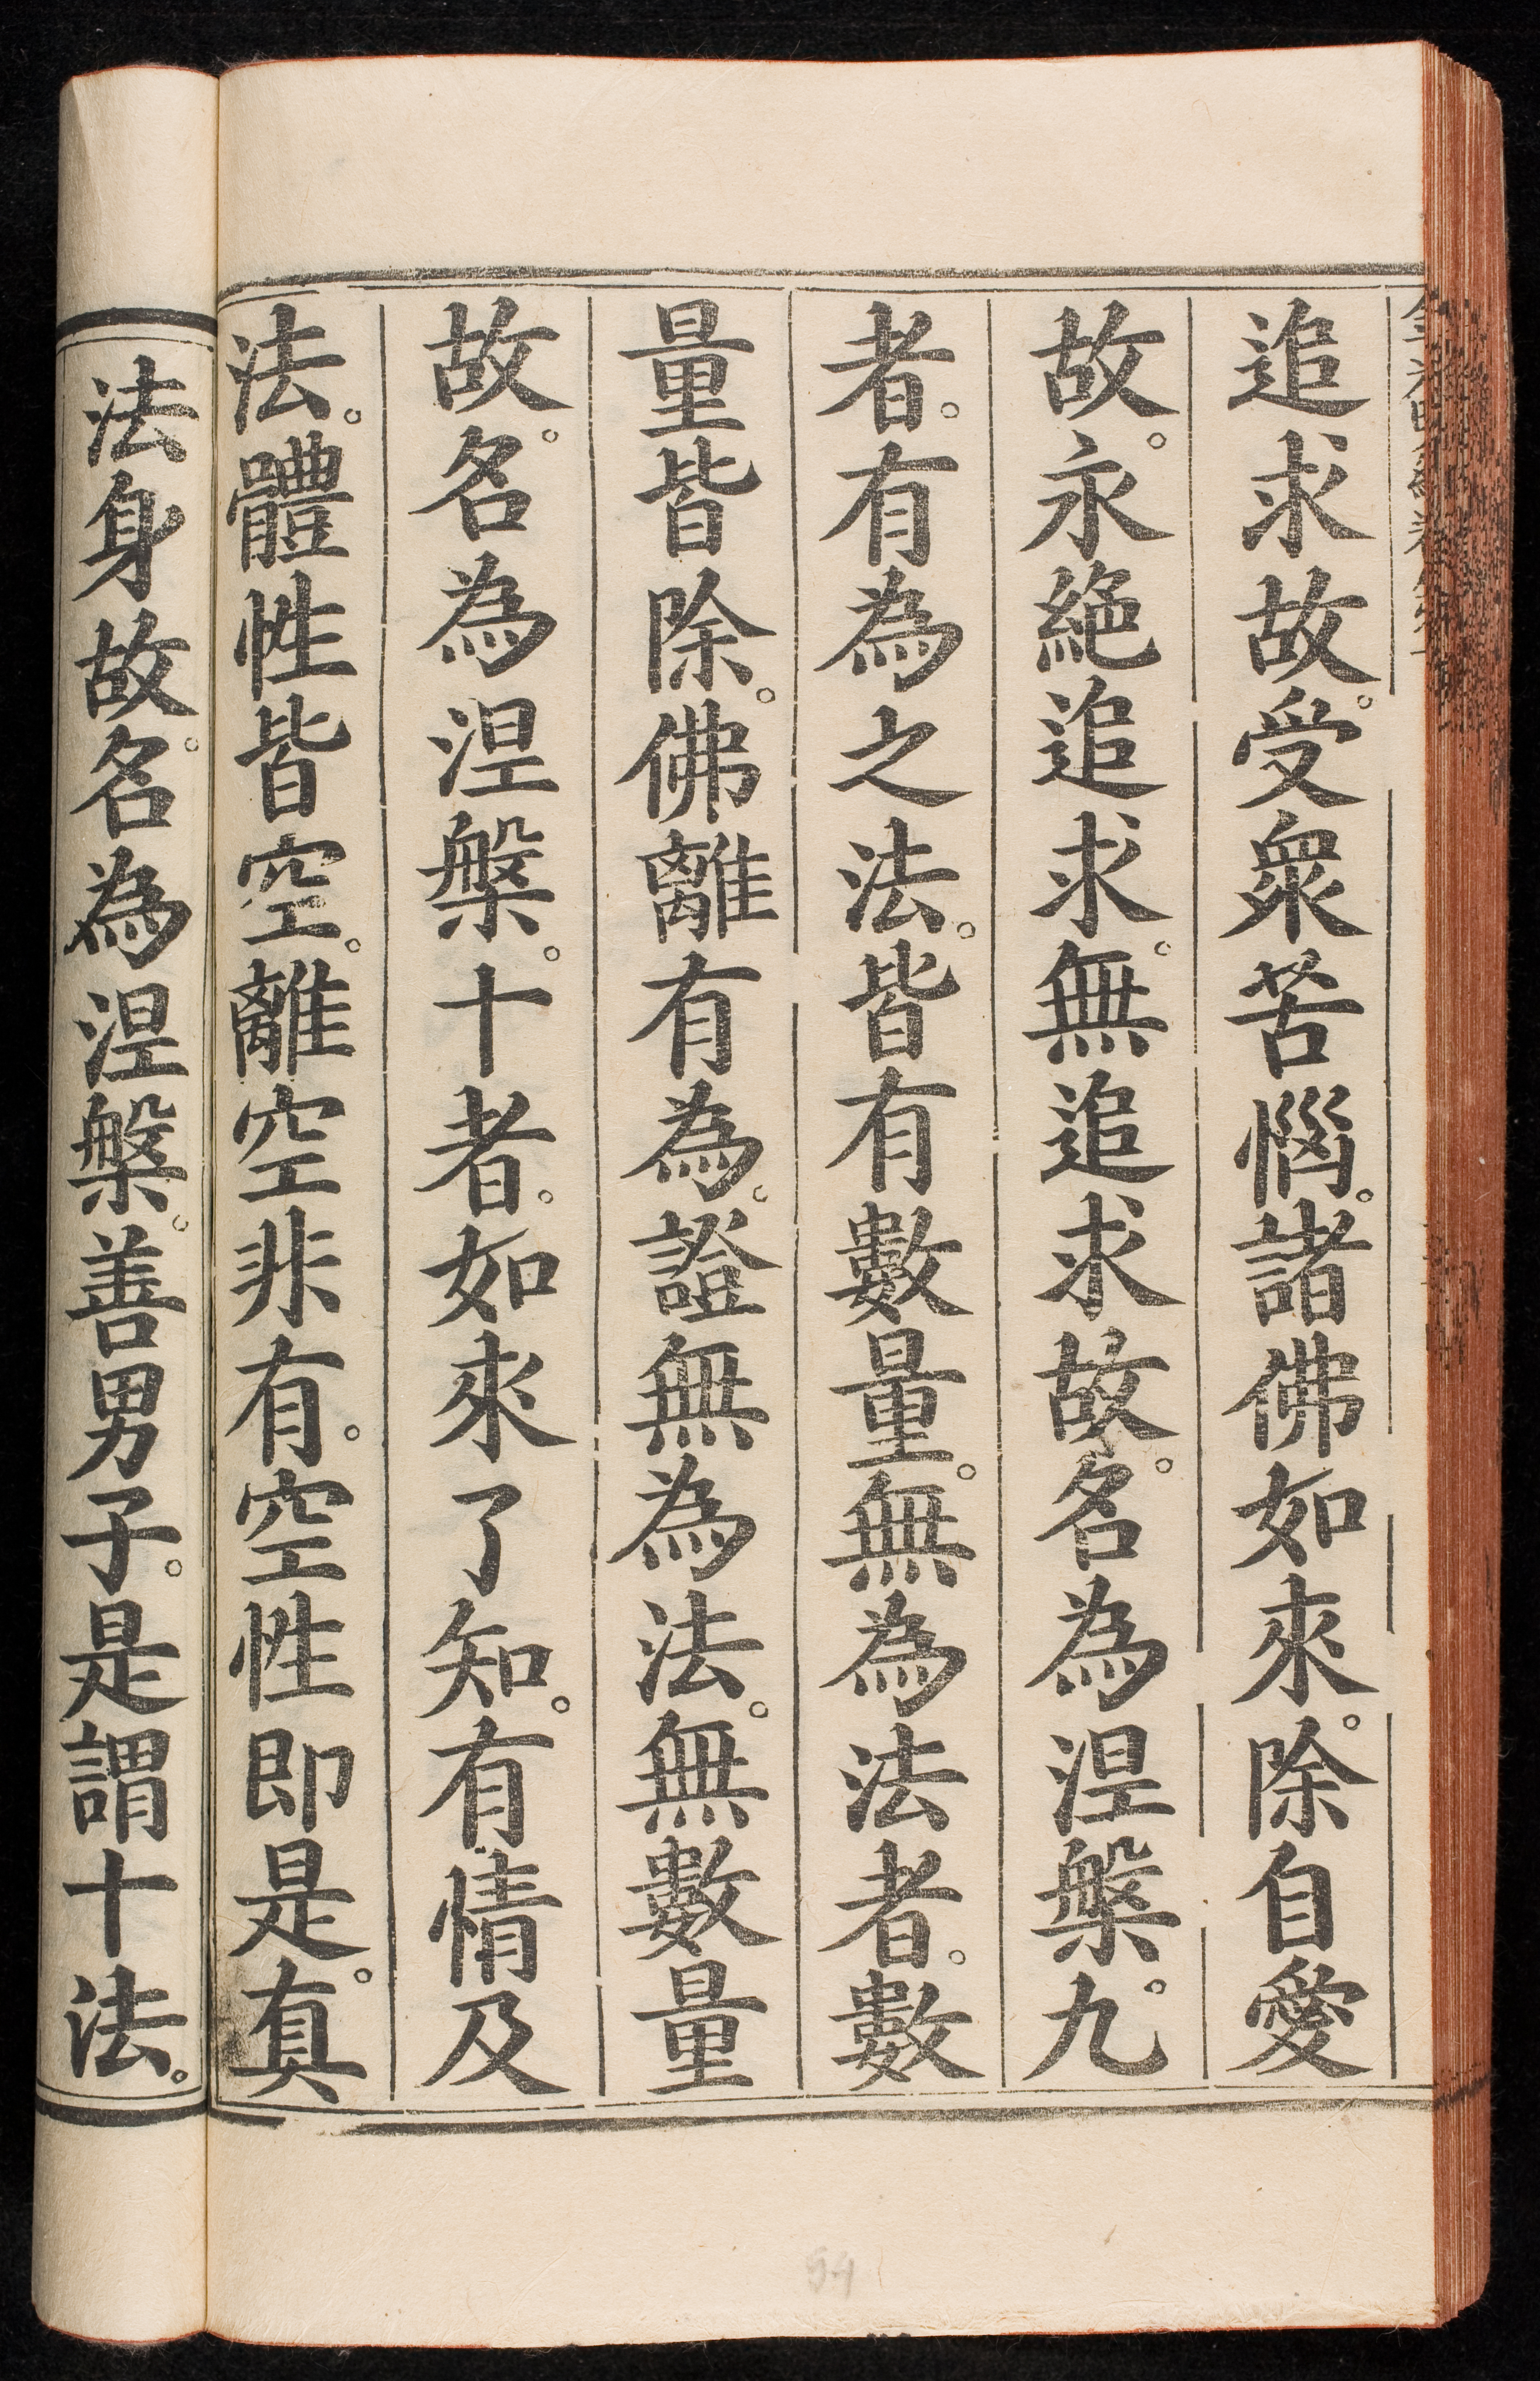 追求故。受衆苦惱。諸佛如來。除自愛
故。永絕追求。無追求故。名為涅槃。九
者。有為之法。皆有數量。無為法者。數
量皆除。佛離有為。證無為法。無數量
故。名為涅槃。十者。如來了知。有情及
法。體性皆空。離空非有。空性即是。真
法身故。名為涅槃。善男子。是謂十法。
54